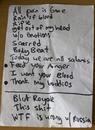 All pain is Gone
Rain of blood
Life
Get out of my head
w/o emotions
Scarred
Early Beast
Today we are all satanists
Feed your Anger
I want your Blood
Thank my buddies
Blut Royale
This shit
WTF is wrong w/ Russia